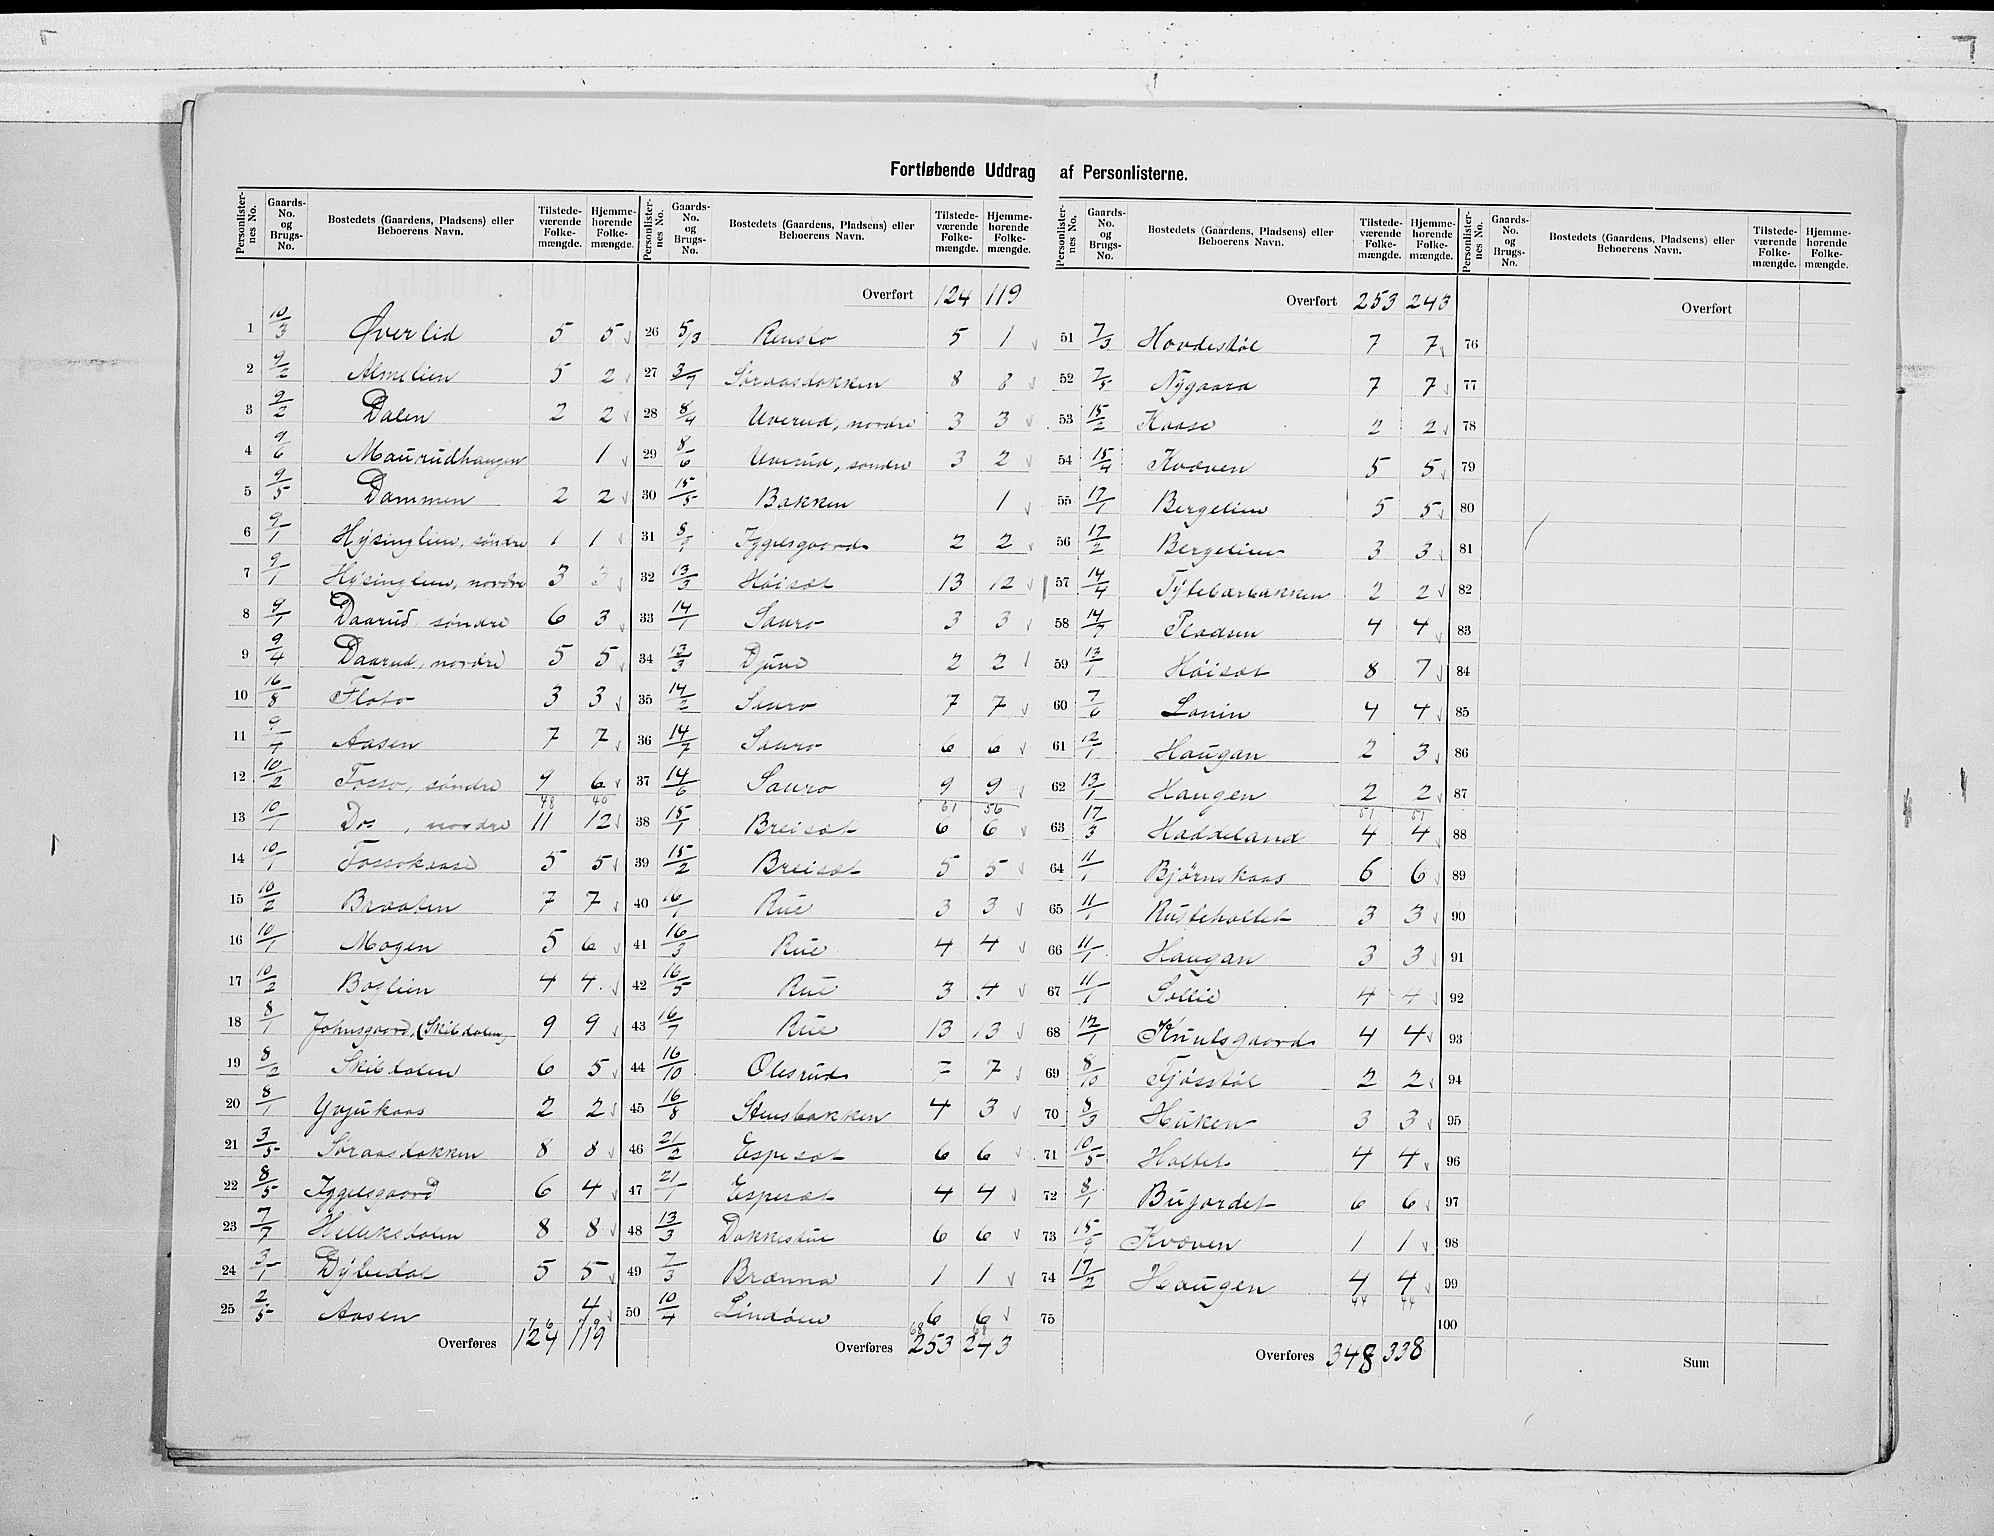 Fortløbende Uddrag af Personlisterne.
Personlisternes No. Gaards-No. og Brugs-No. Bostedets (Gaardens, Pladsens) eller Beboerens Navn. Tilstedeværende Folkemængde. Hjemmehørende Folkemængde.
1 10/3 Øverlid 5 5
2 9/2 Almelien 5 2
3 9/2 Dalen 2 2
4 9/6 Maurudhaugen 1
5 9/5 Dammen 2 2
6 9/1 Hysinglien, søndre 1 1
7 9/1 Hysinglien, nordre 3 3
8 9/1 Daarud søndre 6 3
9 9/4 Daarud, nordre 5 5
10 16/8 Floto 3 3
11 9/7 Aasen 7 7
12 10/2 Fosso, søndre 9 6
48 40
13 10/1 Do , nordre 11 12
14 10/1 Fossokaase 5 5
15 10/2 Braaten 7 7
16 10/1 Mogen 5 6
17 10/2 Boglien 4 4
18 8/1 Johnsgaard, (Skibdalen) 9 9
19 8/2 Skibdalen 6 5
20 8/1 kaas 2 2
21 3/5 Søraasdokken 8 8
22 8/5 Iggelsgaard 6 4
23 7/7 Helliksdalen 8 8
24 3/1 Dybedal 5 5
25 2/5 Aasen 4
76 79
Overføres 124 119
Personlisternes No. Gaards-No. og Brugs-No. Bostedets (Gaardens, Pladsens) eller Beboerens Navn. Tilstedeværende Folkemængde. Hjemmehørende Folkemængde.
Overført 124 119
26 5/3 Renslo 5 1
27 3/7 Søraasdokken 8 8
28 8/4 Uverud, nordre 3 3
29 8/6 Uverud, søndre 3 2
30 15/5 Bakken 1
31 8/9 Iggelsgaard 2 2
32 13/3 Høisæt 13 12
33 14/1 Sauro 3 3
34 13/3 Djuve 2 2
35 14/2 Sauro 7 7
36 14/7 Sauro 6 6
37 14/6 Sauro 9 9
61 56
38 15/1 Breisæt 6 6
39 15/2 Breisæt 5 5
40 16/1 Rue 3 3
41 16/3 Rue 4 4
42 16/5 Rue 3 4
43 16/7 Rue 13 13
44 16/10 Olesrud 7 7
45 16/8 Stensbakken 4 3
46 21/2 Espesæt 6 6
47 21/1 Espesæt 4 4
48 13/3 Dokkestue 6 6
49 7/3 Brænna 1 1
50 10/4 Lindøen 6 6
68 68
Overføres 253 243
Personlisternes No. Gaards-No. og Brugs-No. Bostedets (Gaardens, Pladsens) eller Beboerens Navn. Tilstedeværende Folkemængde. Hjemmehørende Folkemængde.
Overført 253 243
51 7/3 Hovdestøl 7 7
52 7/5 Nygaard 7 7
53 15/2 Kaase 2 2
54 15/4 Kvæven 5 5
55 17/1 Bergelien 5 5
56 17/2 Bergelien 3 3
57 14/4 Tytebærbakken 2 2
58 14/7 Pladsen 4 4
59 13/1 Høisæt 8 7
60 7/6 Lonin 4 4
61 12/1 Haugan 2 3
62 13/1 Haugen 2 2
51 51
63 17/3 Haddeland 4 4
64 11/1 Bjørnskaas 6 6
65 11/1 Rusteholtet 3 3
66 11/1 Haugan 3 3
67 11/1 Sollie 4 4
68 12/1 Knutsgaard 4 4
69 8/10 Tjøsstøl 2 2
70 8/3 Haken 3 3
71 10/5 Holtet 4 4
72 8/1 Bujordet 6 6
73 15/9 Kvæven 1 1
74 17/2 Haugen 4 4
44 44
75
Overføres 348 338
Personlisternes No. Gaards-No. og Brugs-No. Bostedets (Gaardens, Pladsens) eller Beboerens Navn. Tilstedeværende Folkemængde. Hjemmehørende Folkemængde.
Overført
76
77
78
79
80
81
82
83
84
85
86
87
88
89
90
91
92
93
94
95
96
97
98
99
100
Sum